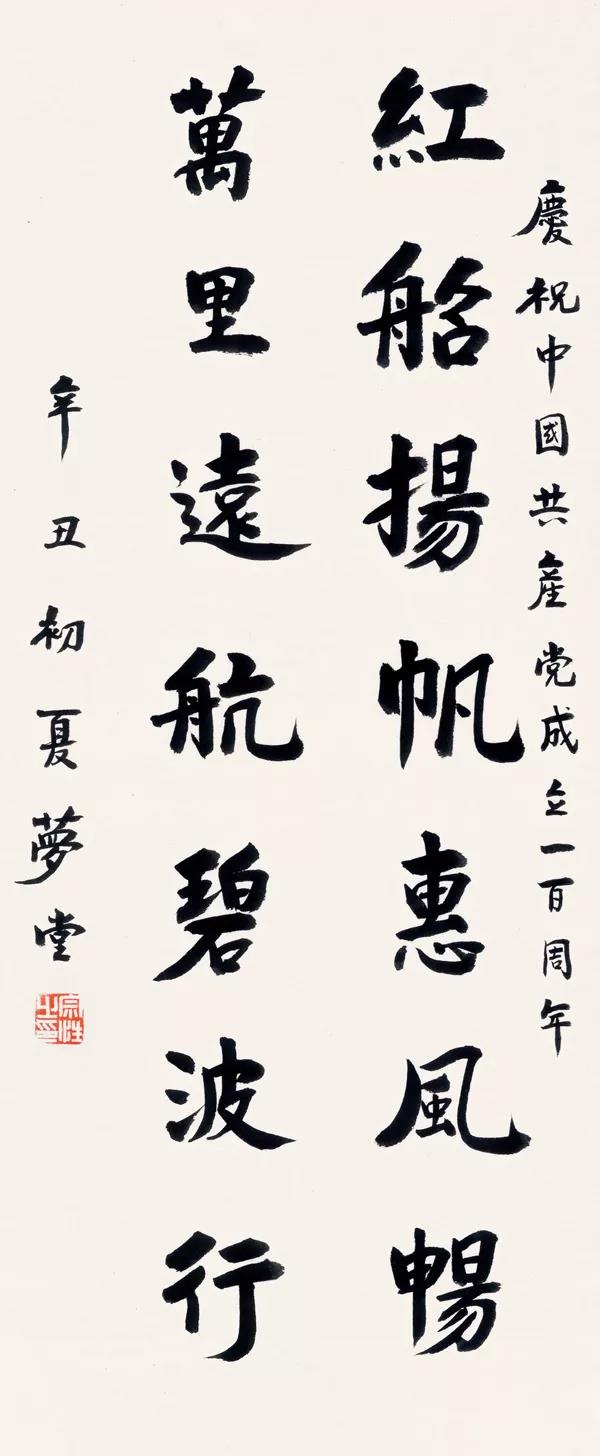 慶祝中國共産党成立一百周年
紅船揚帆惠風暢
萬里遠航碧波行
辛丑初夏夢堂
宗性之印